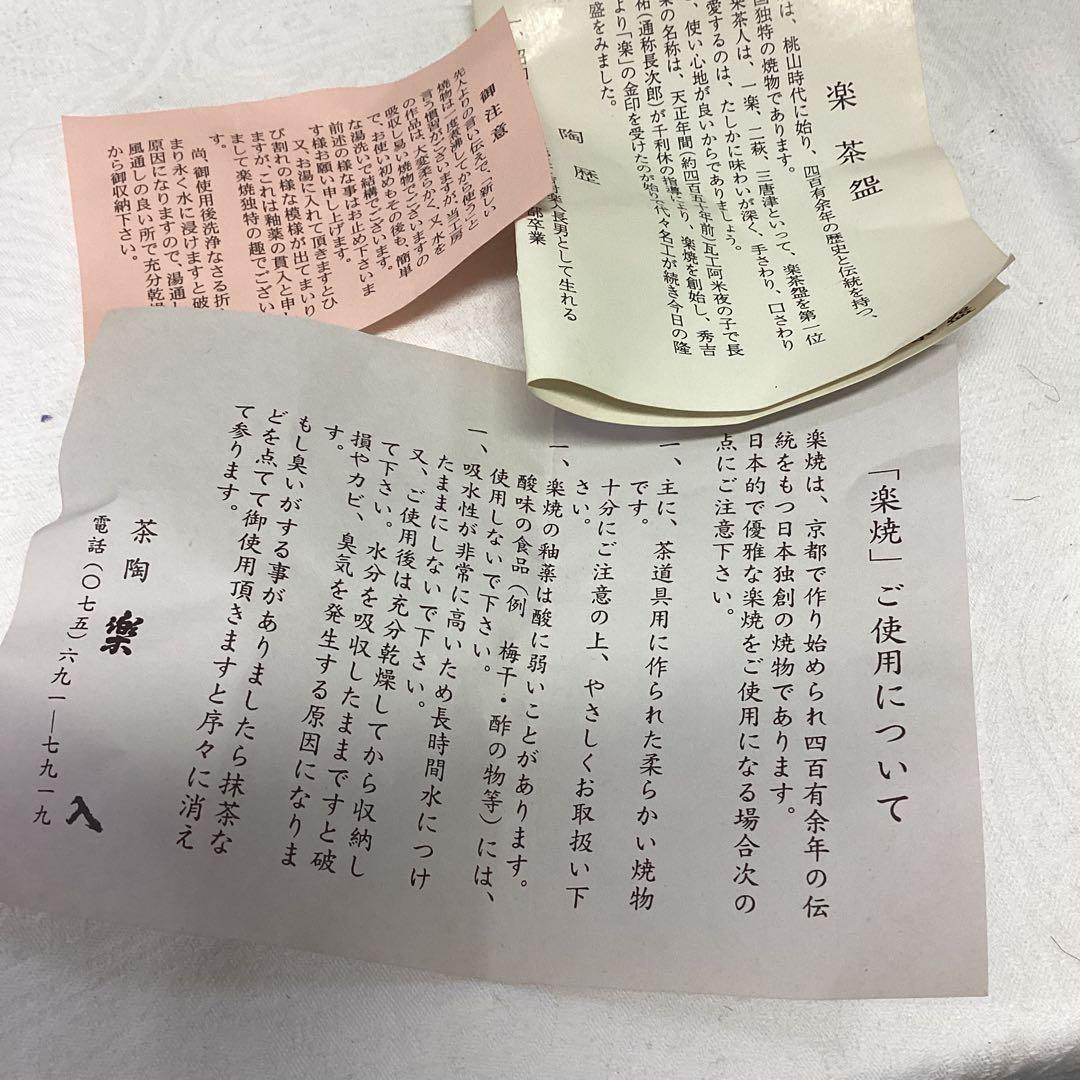 楽茶盌
は、桃山時代に始り、四百有余年の歴史と伝統を持つ、
国独特の焼物であります。
来茶人は、一楽、二萩、三唐津といって、楽茶盌を第一位
愛するのは、たしかに味わいが深く、手さわり、口さわり
、使い心地が良いからでありましょう。
楽の名称は、天正年間(約四百五十年前)瓦工阿米夜の子で長
祐(通称長次郎)が千利休の指導により、楽焼を創始し、秀吉
より「楽」の金印を受けたのが始り代々名工が続き今日の隆
盛をみました。
陶歴
楽入長男として生れる
部卒業
御注意
先人よりの言い伝えで、新しい
焼物は一度煮沸してから使うと
言う慣習がございますが、当工房
の作品は、大変柔らかく、又、水を
吸収し易い焼物でございますの
で、お使い初めもその後も、簡単
な湯洗いで結構でございます。
前述の様な事はお止め下さいま
す様お願い申し上げます。
又、お湯に入れて頂きますとひ
び割れの様な模様が出てまいり
ますが、これは釉薬の貫入と申し
まして楽焼独特の趣でござい
す。
尚、御使用後洗浄なさる折、
まり永く水に浸けますと破
原因になりますので、湯通し
風通しの良い所で充分乾燥
から御収納下さい。
「楽焼」ご使用について
楽焼は、京都で作り始められ四百有余年の伝
統をもつ日本独創の焼物であります。
日本的で優雅な楽焼をご使用になる場合次の
点にご注意下さい。
一、主に、茶道具用に作られた柔らかい焼物
です。
十分にご注意の上、やさしくお取扱い下
さい。
一、楽焼の釉薬は酸に弱いことがあります。
酸味の食品(例 梅干・酢の物等)には、
使用しないで下さい。
一、吸水性が非常に高いため長時間水につけ
たままにしないで下さい。
又、ご使用後は充分乾燥してから収納し
て下さい。水分を吸収したままですと破
損やカビ、臭気を発生する原因になりま
す。
もし臭いがする事がありましたら抹茶な
どを点てて御使用頂きますと序々に消え
て参ります。
茶陶 樂入
電話(〇七五)六九一―七九一九